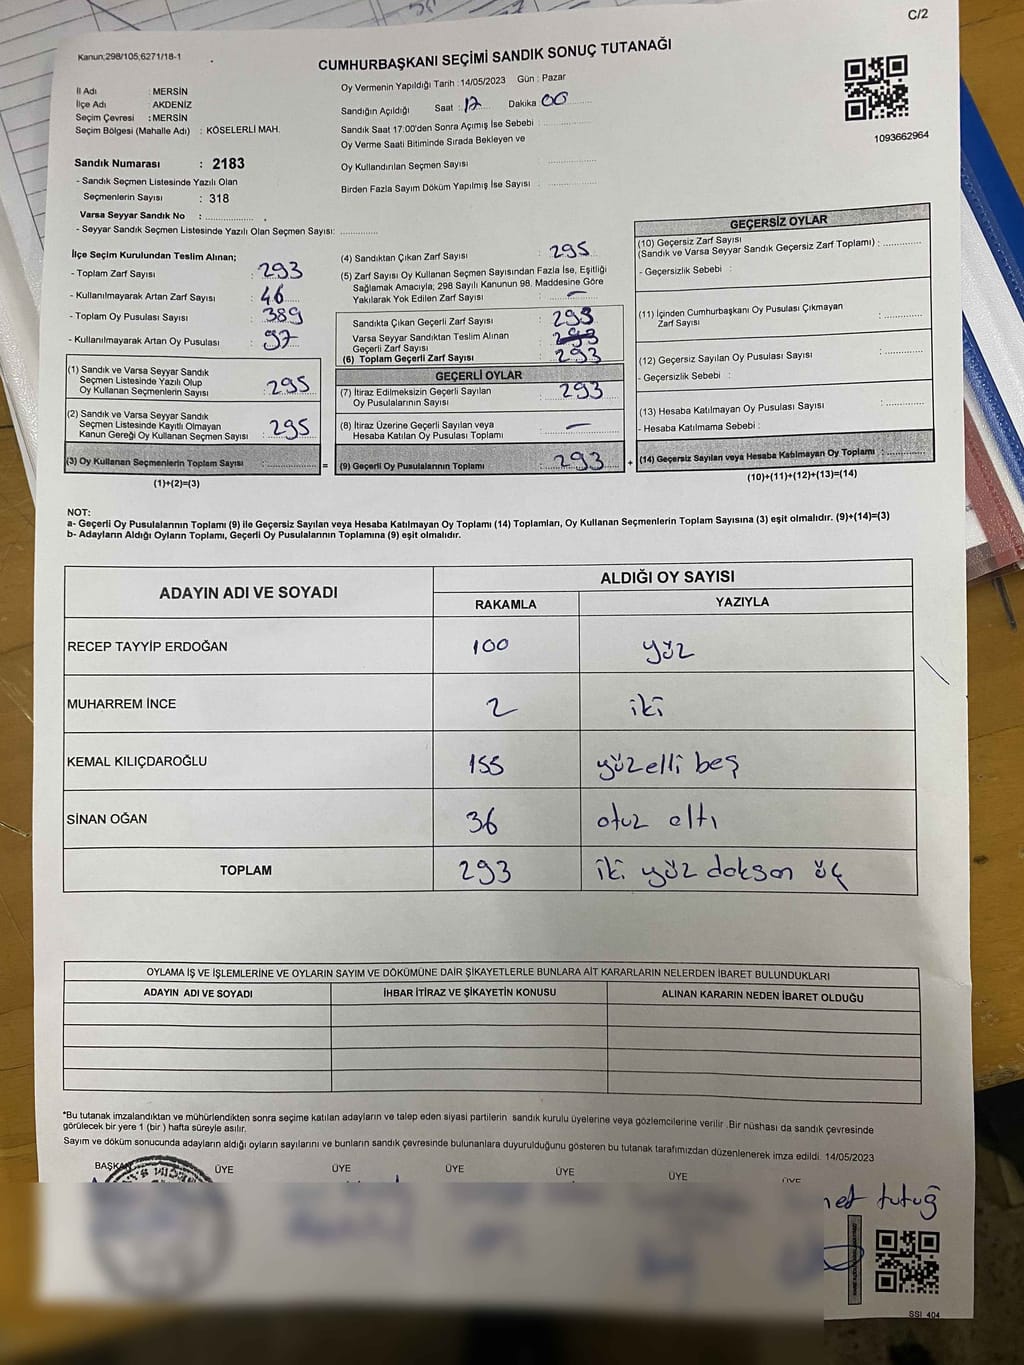 C/2
Kanun;298/105;6271/18-1
CUMHURBAŞKANI SEÇİMİ SANDIK SONUÇ TUTANAĞI
İl Adı : MERSİN
İlçe Adı : AKDENİZ
Seçim Çevresi : MERSİN
Seçim Bölgesi (Mahalle Adı) : KÖSELERLİ MAH.
Sandık Numarası : 2183
- Sandık Seçmen Listesinde Yazılı Olan
Seçmenlerin Sayısı : 318
Varsa Seyyar Sandık No : ..............
- Seyyar Sandık Seçmen Listesinde Yazılı Olan Seçmen Sayısı: ............
Oy Vermenin Yapıldığı Tarih : 14/05/2023 Gün : Pazar
Sandığın Açıldığı Saat : 12 Dakika 00
Sandık Saat 17:00'den Sonra Açımış İse Sebebi :
Oy Verme Saati Bitiminde Sırada Bekleyen ve
Oy Kullandırılan Seçmen Sayısı :
Birden Fazla Sayım Döküm Yapılmış İse Sayısı :
1093662964
İlçe Seçim Kurulundan Teslim Alınan;
- Toplam Zarf Sayısı : 293
- Kullanılmayarak Artan Zarf Sayısı : 46
- Toplam Oy Pusulası Sayısı : 389
- Kullanılmayarak Artan Oy Pusulası : 97
(1) Sandık ve Varsa Seyyar Sandık
Seçmen Listesinde Yazılı Olup
Oy Kullanan Seçmenlerin Sayısı : 295
(2) Sandık ve Varsa Seyyar Sandık
Seçmen Listesinde Kayıtlı Olmayan
Kanun Gereği Oy Kullanan Seçmen Sayısı : 295
(3) Oy Kullanan Seçmenlerin Toplam Sayısı : .............. =
(1)+(2)=(3)
(4) Sandıktan Çıkan Zarf Sayısı : 295
(5) Zarf Sayısı Oy Kullanan Seçmen Sayısından Fazla İse, Eşitliği
Sağlamak Amacıyla; 298 Sayılı Kanunun 98. Maddesine Göre
Yakılarak Yok Edilen Zarf Sayısı : —
Sandıkta Çıkan Geçerli Zarf Sayısı : 293
Varsa Seyyar Sandıktan Teslim Alınan
Geçerli Zarf Sayısı : 293
(6) Toplam Geçerli Zarf Sayısı : 293
GEÇERLİ OYLAR
(7) İtiraz Edilmeksizin Geçerli Sayılan
Oy Pusulalarının Sayısı : 293
(8) İtiraz Üzerine Geçerli Sayılan veya
Hesaba Katılan Oy Pusulası Toplamı : —
(9) Geçerli Oy Pusulalarının Toplamı : 293 +
GEÇERSİZ OYLAR
(10) Geçersiz Zarf Sayısı
(Sandık ve Varsa Seyyar Sandık Geçersiz Zarf Toplamı) : ............
- Geçersizlik Sebebi :
(11) İçinden Cumhurbaşkanı Oy Pusulası Çıkmayan
Zarf Sayısı : ............
(12) Geçersiz Sayılan Oy Pusulası Sayısı : ............
- Geçersizlik Sebebi :
(13) Hesaba Katılmayan Oy Pusulası Sayısı : ............
- Hesaba Katılmama Sebebi :
(14) Geçersiz Sayılan veya Hesaba Katılmayan Oy Toplamı : ............
(10)+(11)+(12)+(13)=(14)
NOT:
a- Geçerli Oy Pusulalarının Toplamı (9) ile Geçersiz Sayılan veya Hesaba Katılmayan Oy Toplamı (14) Toplamları, Oy Kullanan Seçmenlerin Toplam Sayısına (3) eşit olmalıdır. (9)+(14)=(3)
b- Adayların Aldığı Oyların Toplamı, Geçerli Oy Pusulalarının Toplamına (9) eşit olmalıdır.
ADAYIN ADI VE SOYADI ALDIĞI OY SAYISI
RAKAMLA YAZIYLA
RECEP TAYYİP ERDOĞAN 100 yüz
MUHARREM İNCE 2 iki
KEMAL KILIÇDAROĞLU 155 yüzelli beş
SİNAN OĞAN 36 otuz altı
TOPLAM 293 iki yüz doksan üç
OYLAMA İŞ VE İŞLEMLERİNE VE OYLARIN SAYIM VE DÖKÜMÜNE DAİR ŞİKAYETLERLE BUNLARA AİT KARARLARIN NELERDEN İBARET BULUNDUKLARI
ADAYIN ADI VE SOYADI İHBAR İTİRAZ VE ŞİKAYETİN KONUSU ALINAN KARARIN NEDEN İBARET OLDUĞU
*Bu tutanak imzalandıktan ve mühürlendikten sonra seçime katılan adayların ve talep eden siyasi partilerin sandık kurulu üyelerine veya gözlemcilerine verilir .Bir nüshası da sandık çevresinde
görülecek bir yere 1 (bir ) hafta süreyle asılır.
Sayım ve döküm sonucunda adayların aldığı oyların sayılarını ve bunların sandık çevresinde bulunanlara duyurulduğunu gösteren bu tutanak tarafımızdan düzenlenerek imza edildi. 14/05/2023
BAŞKAN ÜYE ÜYE ÜYE ÜYE ÜYE ÜYE
SSI 404